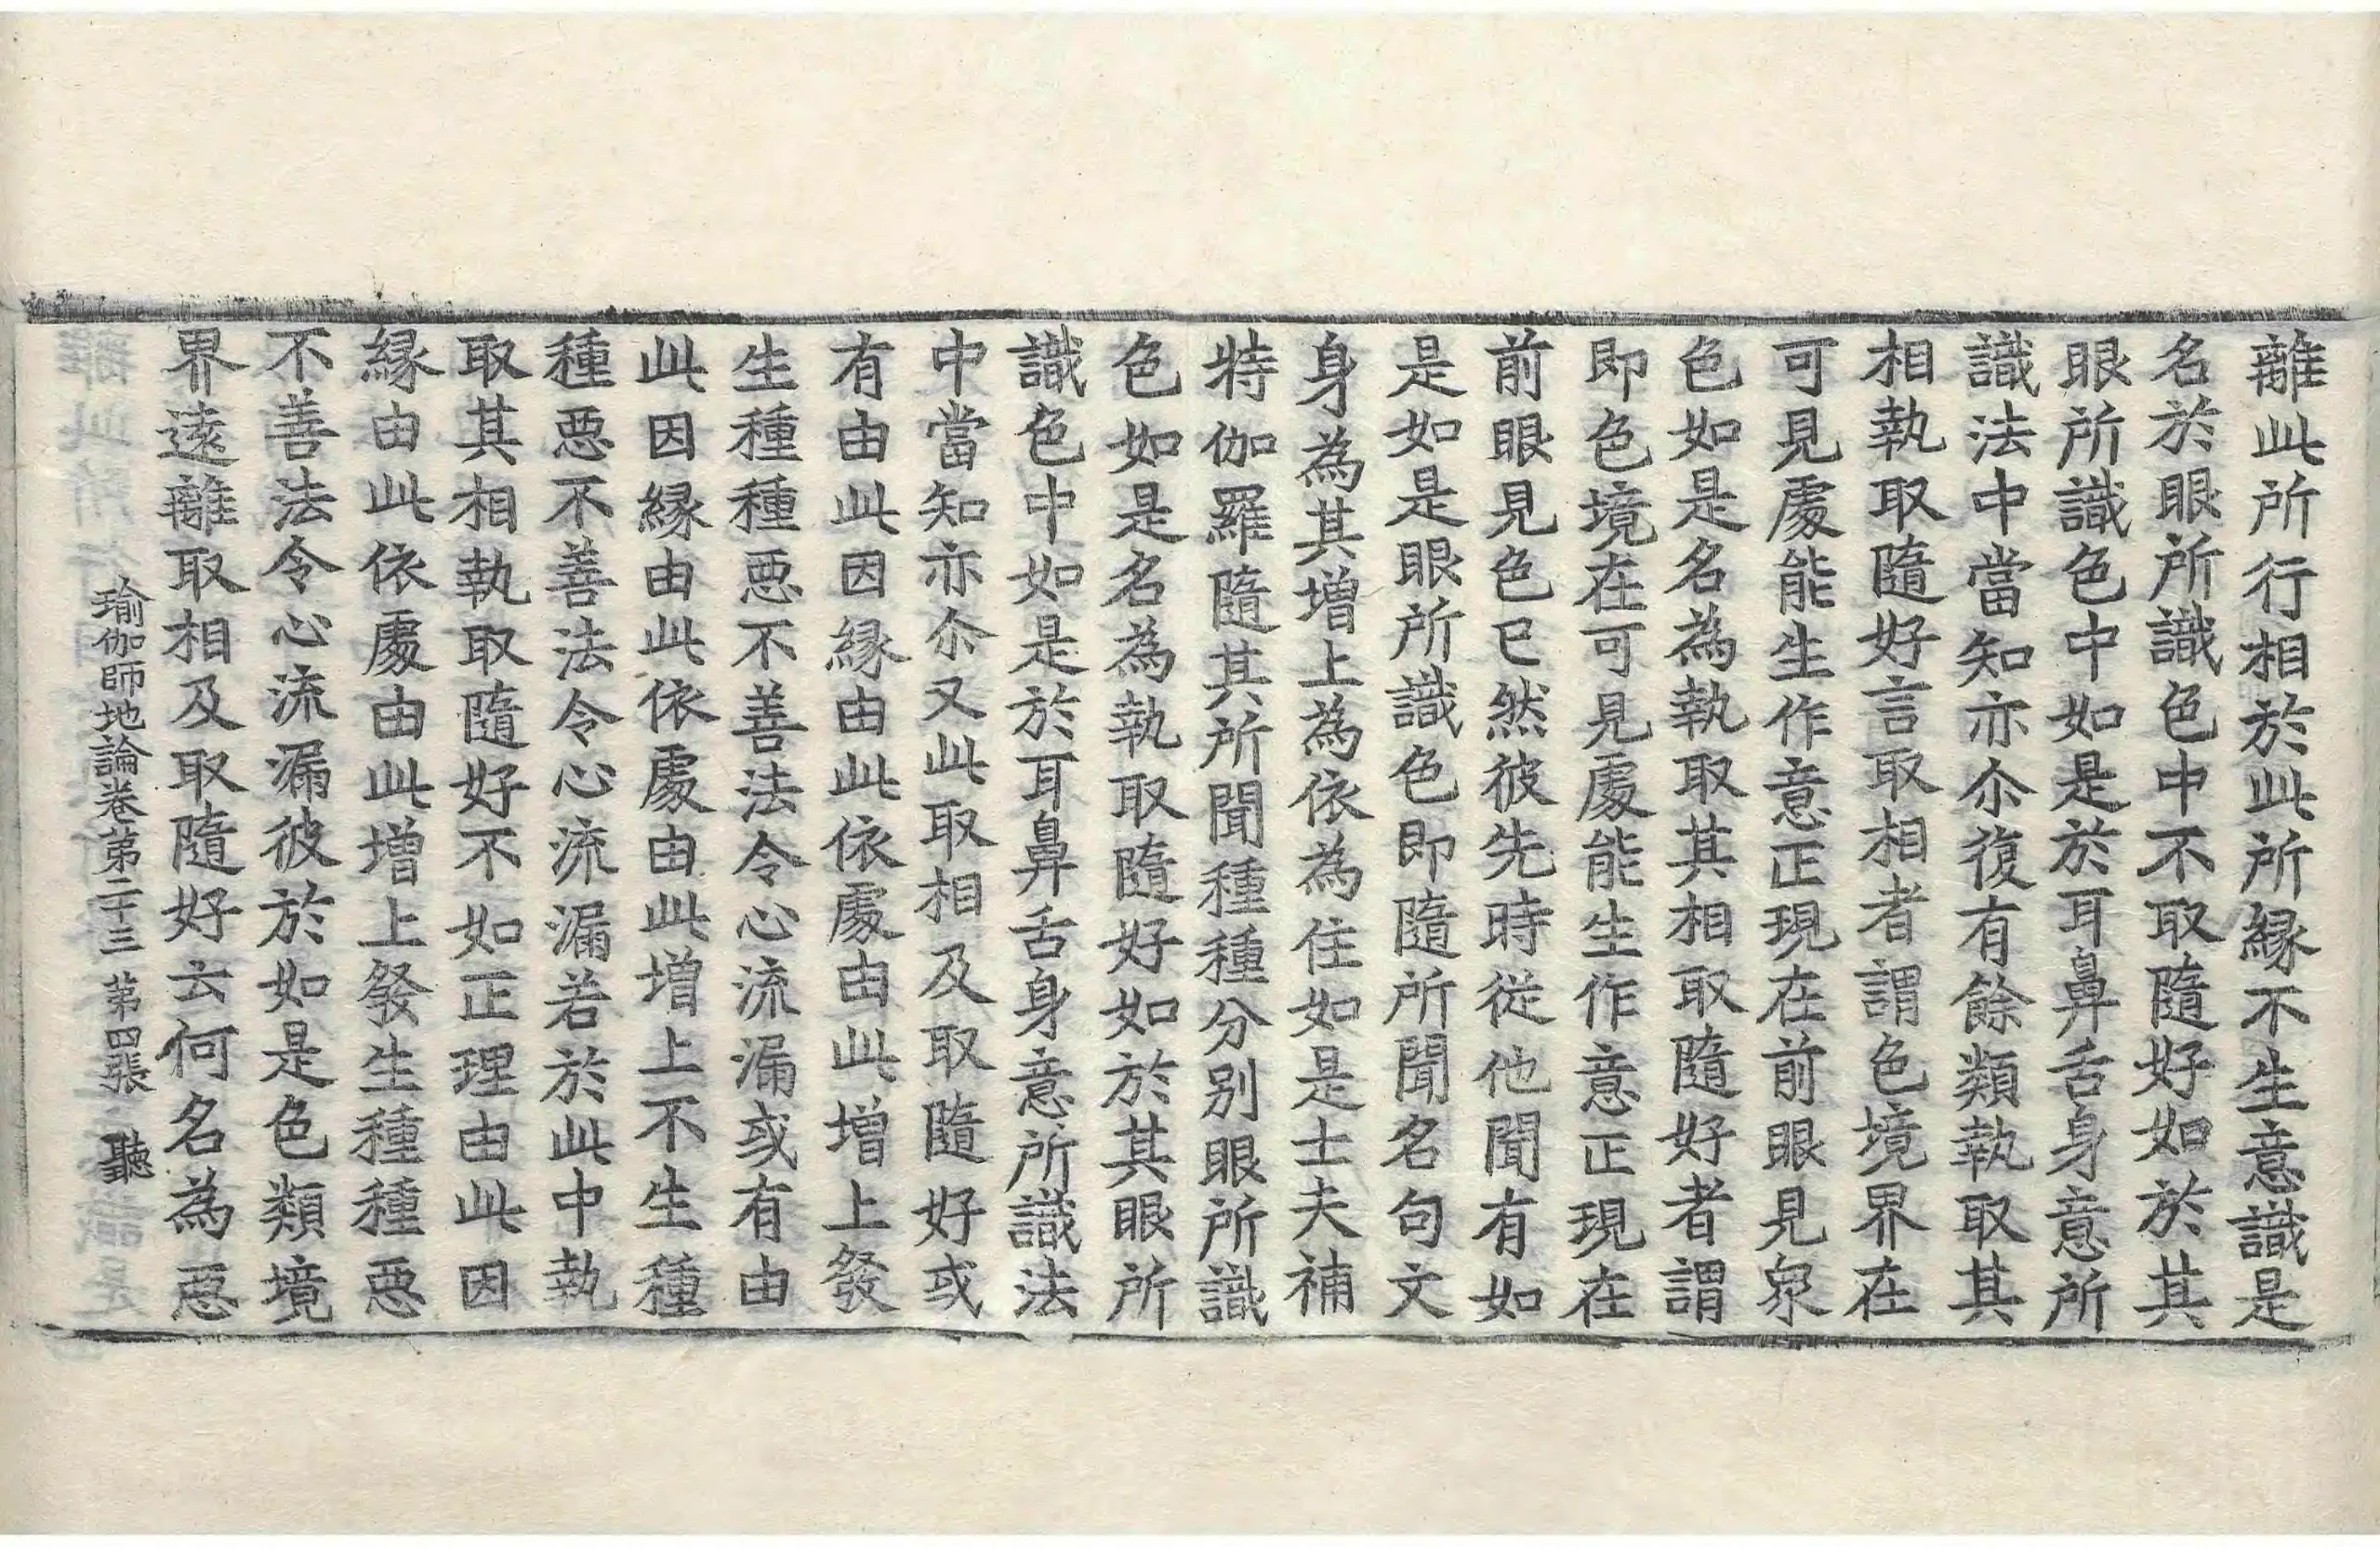 離此所行相於此所緣不生意識是
名於眼所識色中不取隨好如於其
眼所識色中如是於耳鼻舌身意所
識法中當知亦尒復有餘類執取其
相執取隨好言取相者謂色境界在
可見處能生作意正現在前眼見衆
色如是名為執取其相取隨好者謂
即色境在可見處能生作意正現在
前眼見色已然彼先時從他聞有如
是如是眼所識色即隨所聞名句文
身為其增上為依為住如是士夫補
特伽羅隨其所聞種種分別眼所識
色如是名為執取隨好如於其眼所
識色中如是於耳鼻舌身意所識法
中當知亦尒又此取相及取隨好或
有由此因緣由此依處由此增上發
生種種惡不善法令心流漏或有由
此因緣由此依處由此增上不生種
種惡不善法令心流漏若於此中執
取其相執取隨好不如正理由此因
緣由此依處由此增上發生種種惡
不善法令心流漏彼於如是色類境
界遠離取相及取隨好云何名為惡
瑜伽師地論卷第二十三 第四張 聽